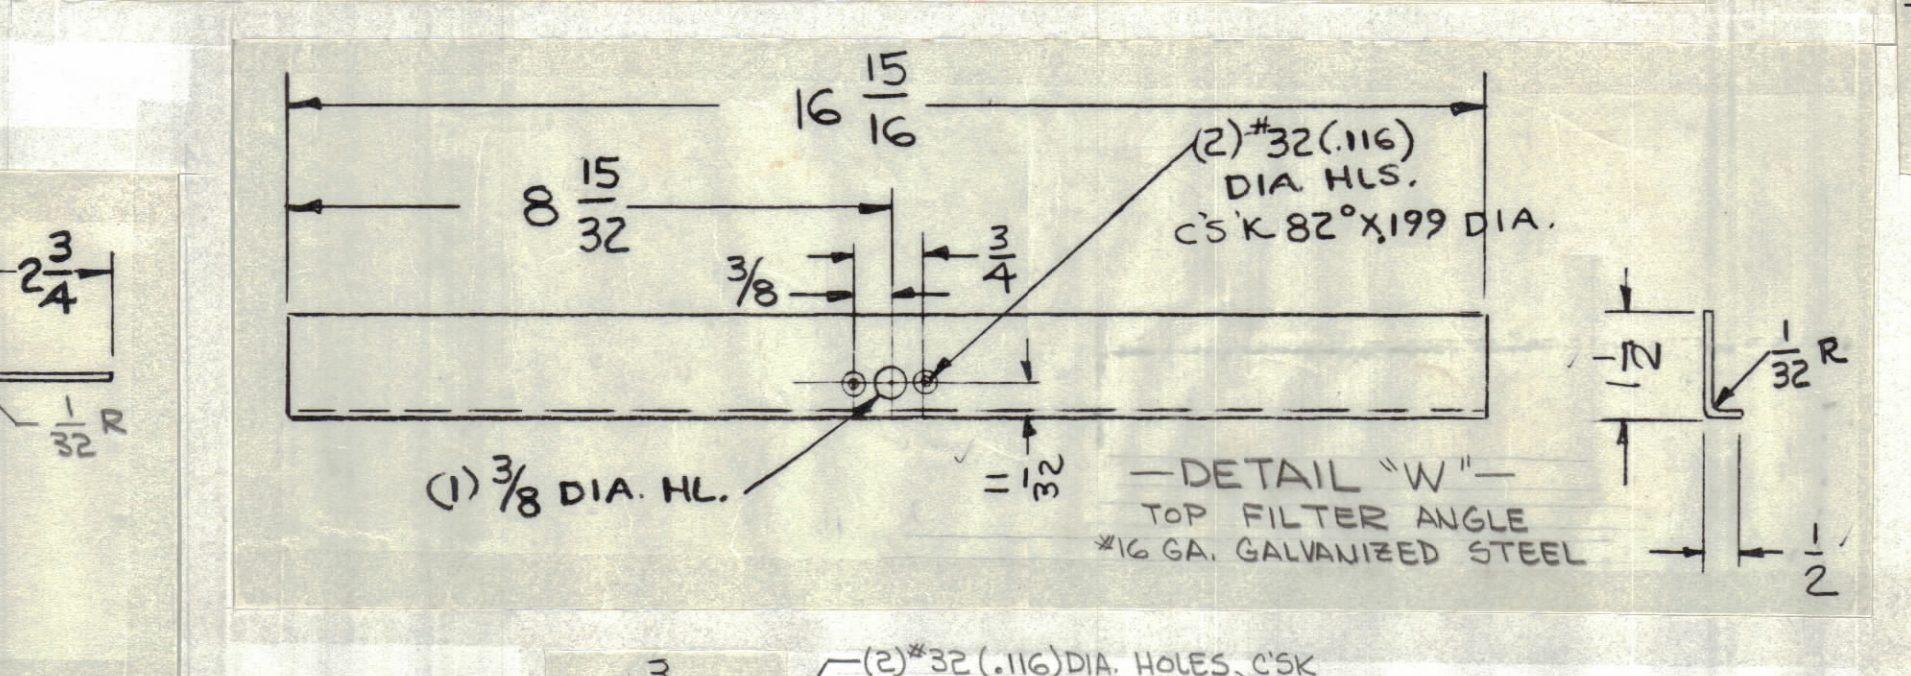 16 15/16
(2) #32 (.116)
DIA. HLS.
C'S'K 82° X .199 DIA.
8 15/32
3/4
3/8
2 3/4
1/32 R
1 1/2
1/32 R
(1) 3/8 DIA. HL.
11/32
—DETAIL "W"—
TOP FILTER ANGLE
#16 GA. GALVANIZED STEEL
1/2
3
(2) #32 (.116) DIA. HOLES, C'SK